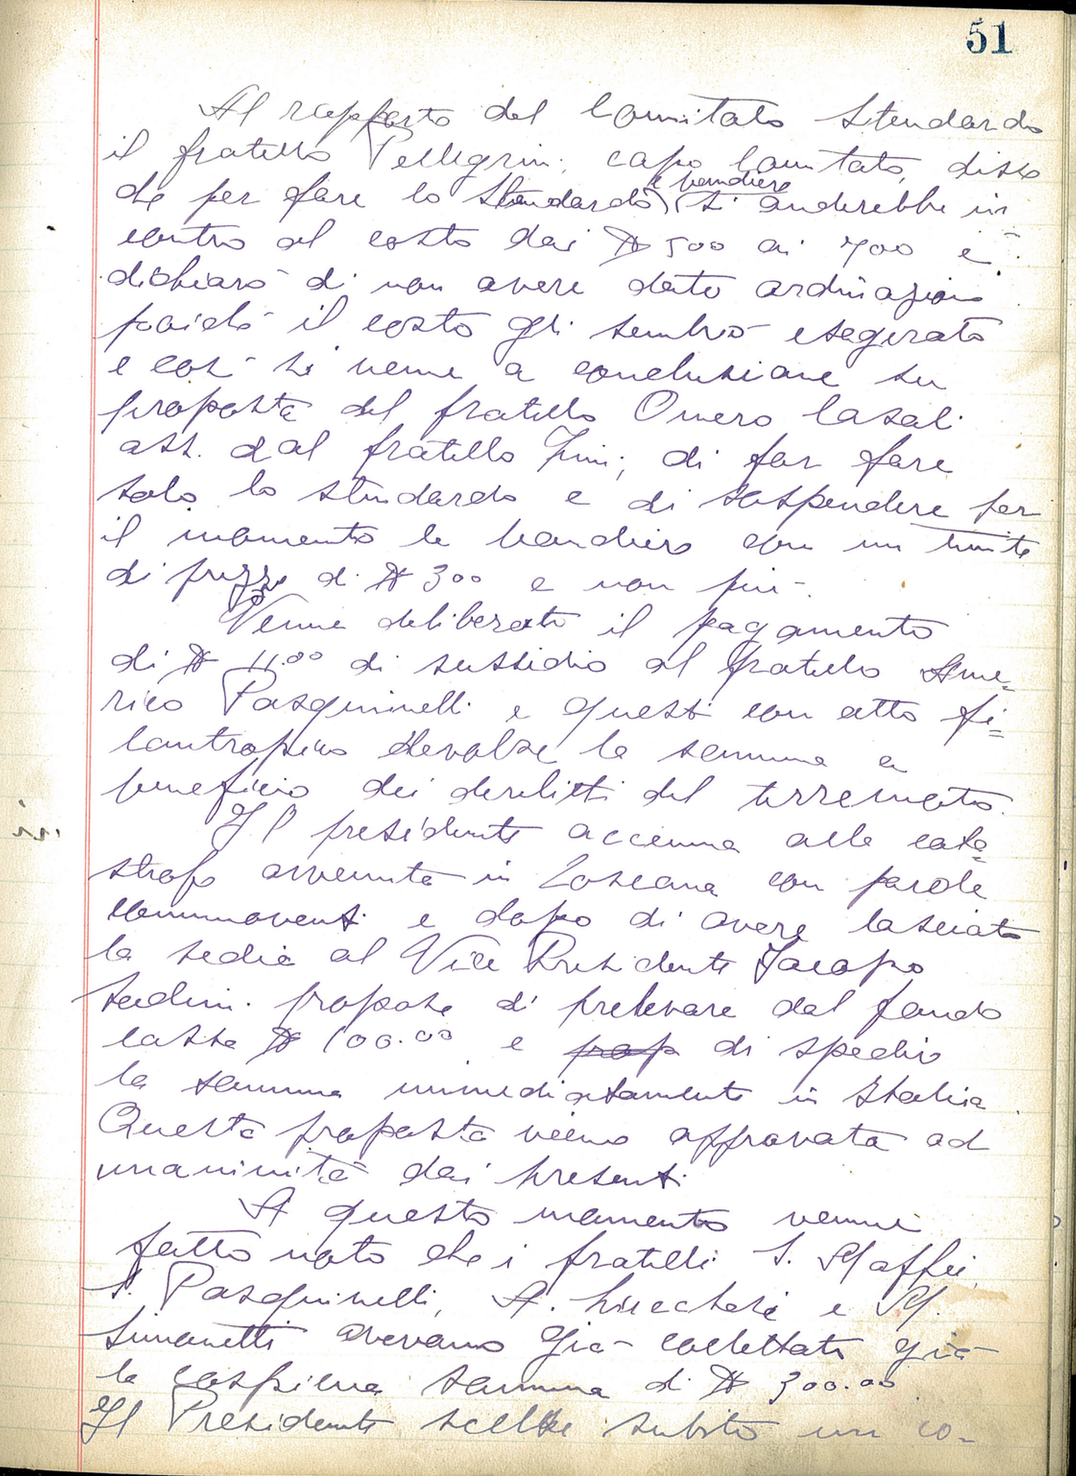 51
Al rapporto del Comitato Stendardo
il fratello Pellegrini, capo Comitato, disse
che per fare lo Stendardo e bandiere si anderebbe in
contro al costo dai $ 500 ai 700 e
dichiarò di non avere dato ordinazione
poichè il costo gli sembrò esagerato
e così si venne a conclusione su
proposta del fratello Omero Casali
ass. dal fratello Zini, di far fare
solo lo stendardo e di sospendere per
il momento le bandiere con un limite
di prezzo di $ 300 e non più.
Venne deliberato il pagamento
di $ 11.00 di sussidio al fratello Ame=
rico Pasquinelli e questi con atto fi=
lantropico devolse la somma a
beneficio dei derelitti del terremoto.
Il presidente accenna alla cata=
strofe avvenuta in Toscana con parole
commoventi e dopo di avere lasciato
la sedia al Vice Presidente Jacopo
propose di prelevare dal fondo
cassa $ 100.00 e prop di spedire
la somma immediatamente in Italia.
Questa proposta viene approvata ad
unanimità dai presenti.
A questo momento venne
fatto noto che i fratelli S. Maffei,
S. Pasquinelli, A. Lucchesi e M.
Simonetti avevano già collettato già
la cospicua somma di $ 300.00.
Il Presidente scelse subito un co-